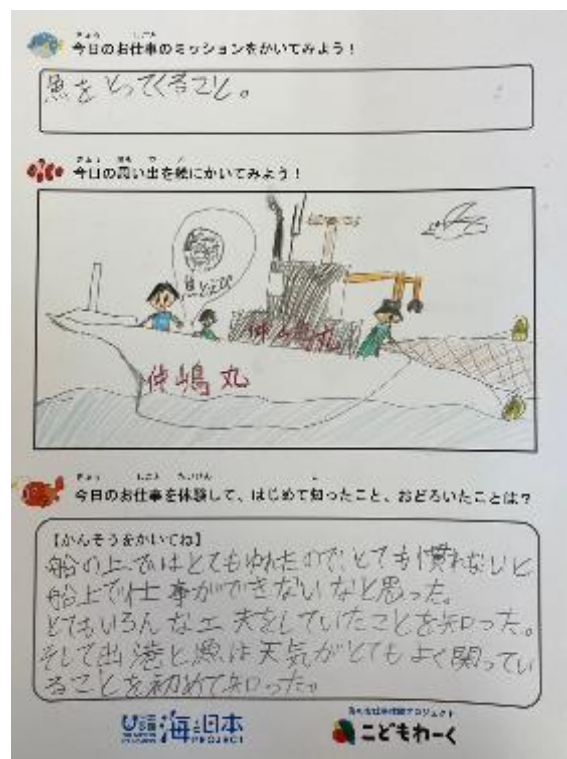 今日のお仕事のミッションをかいてみよう！
魚をとってくること。
今日の思い出を絵にかいてみよう！
仲嶋丸
仲嶋丸
今日のお仕事を体験して、はじめて知ったこと、おどろいたことは？
【かんそうをかいてね】
船の上ではとてもゆれたので、とても慣れないと
船上で仕事ができないなと思った。
とてもいろんな工夫をしていたことを知った。
そして出港と漁は天気がとてもよく関ってい
ることを初めて知った。
海と日本
PROJECT
こどもわーく